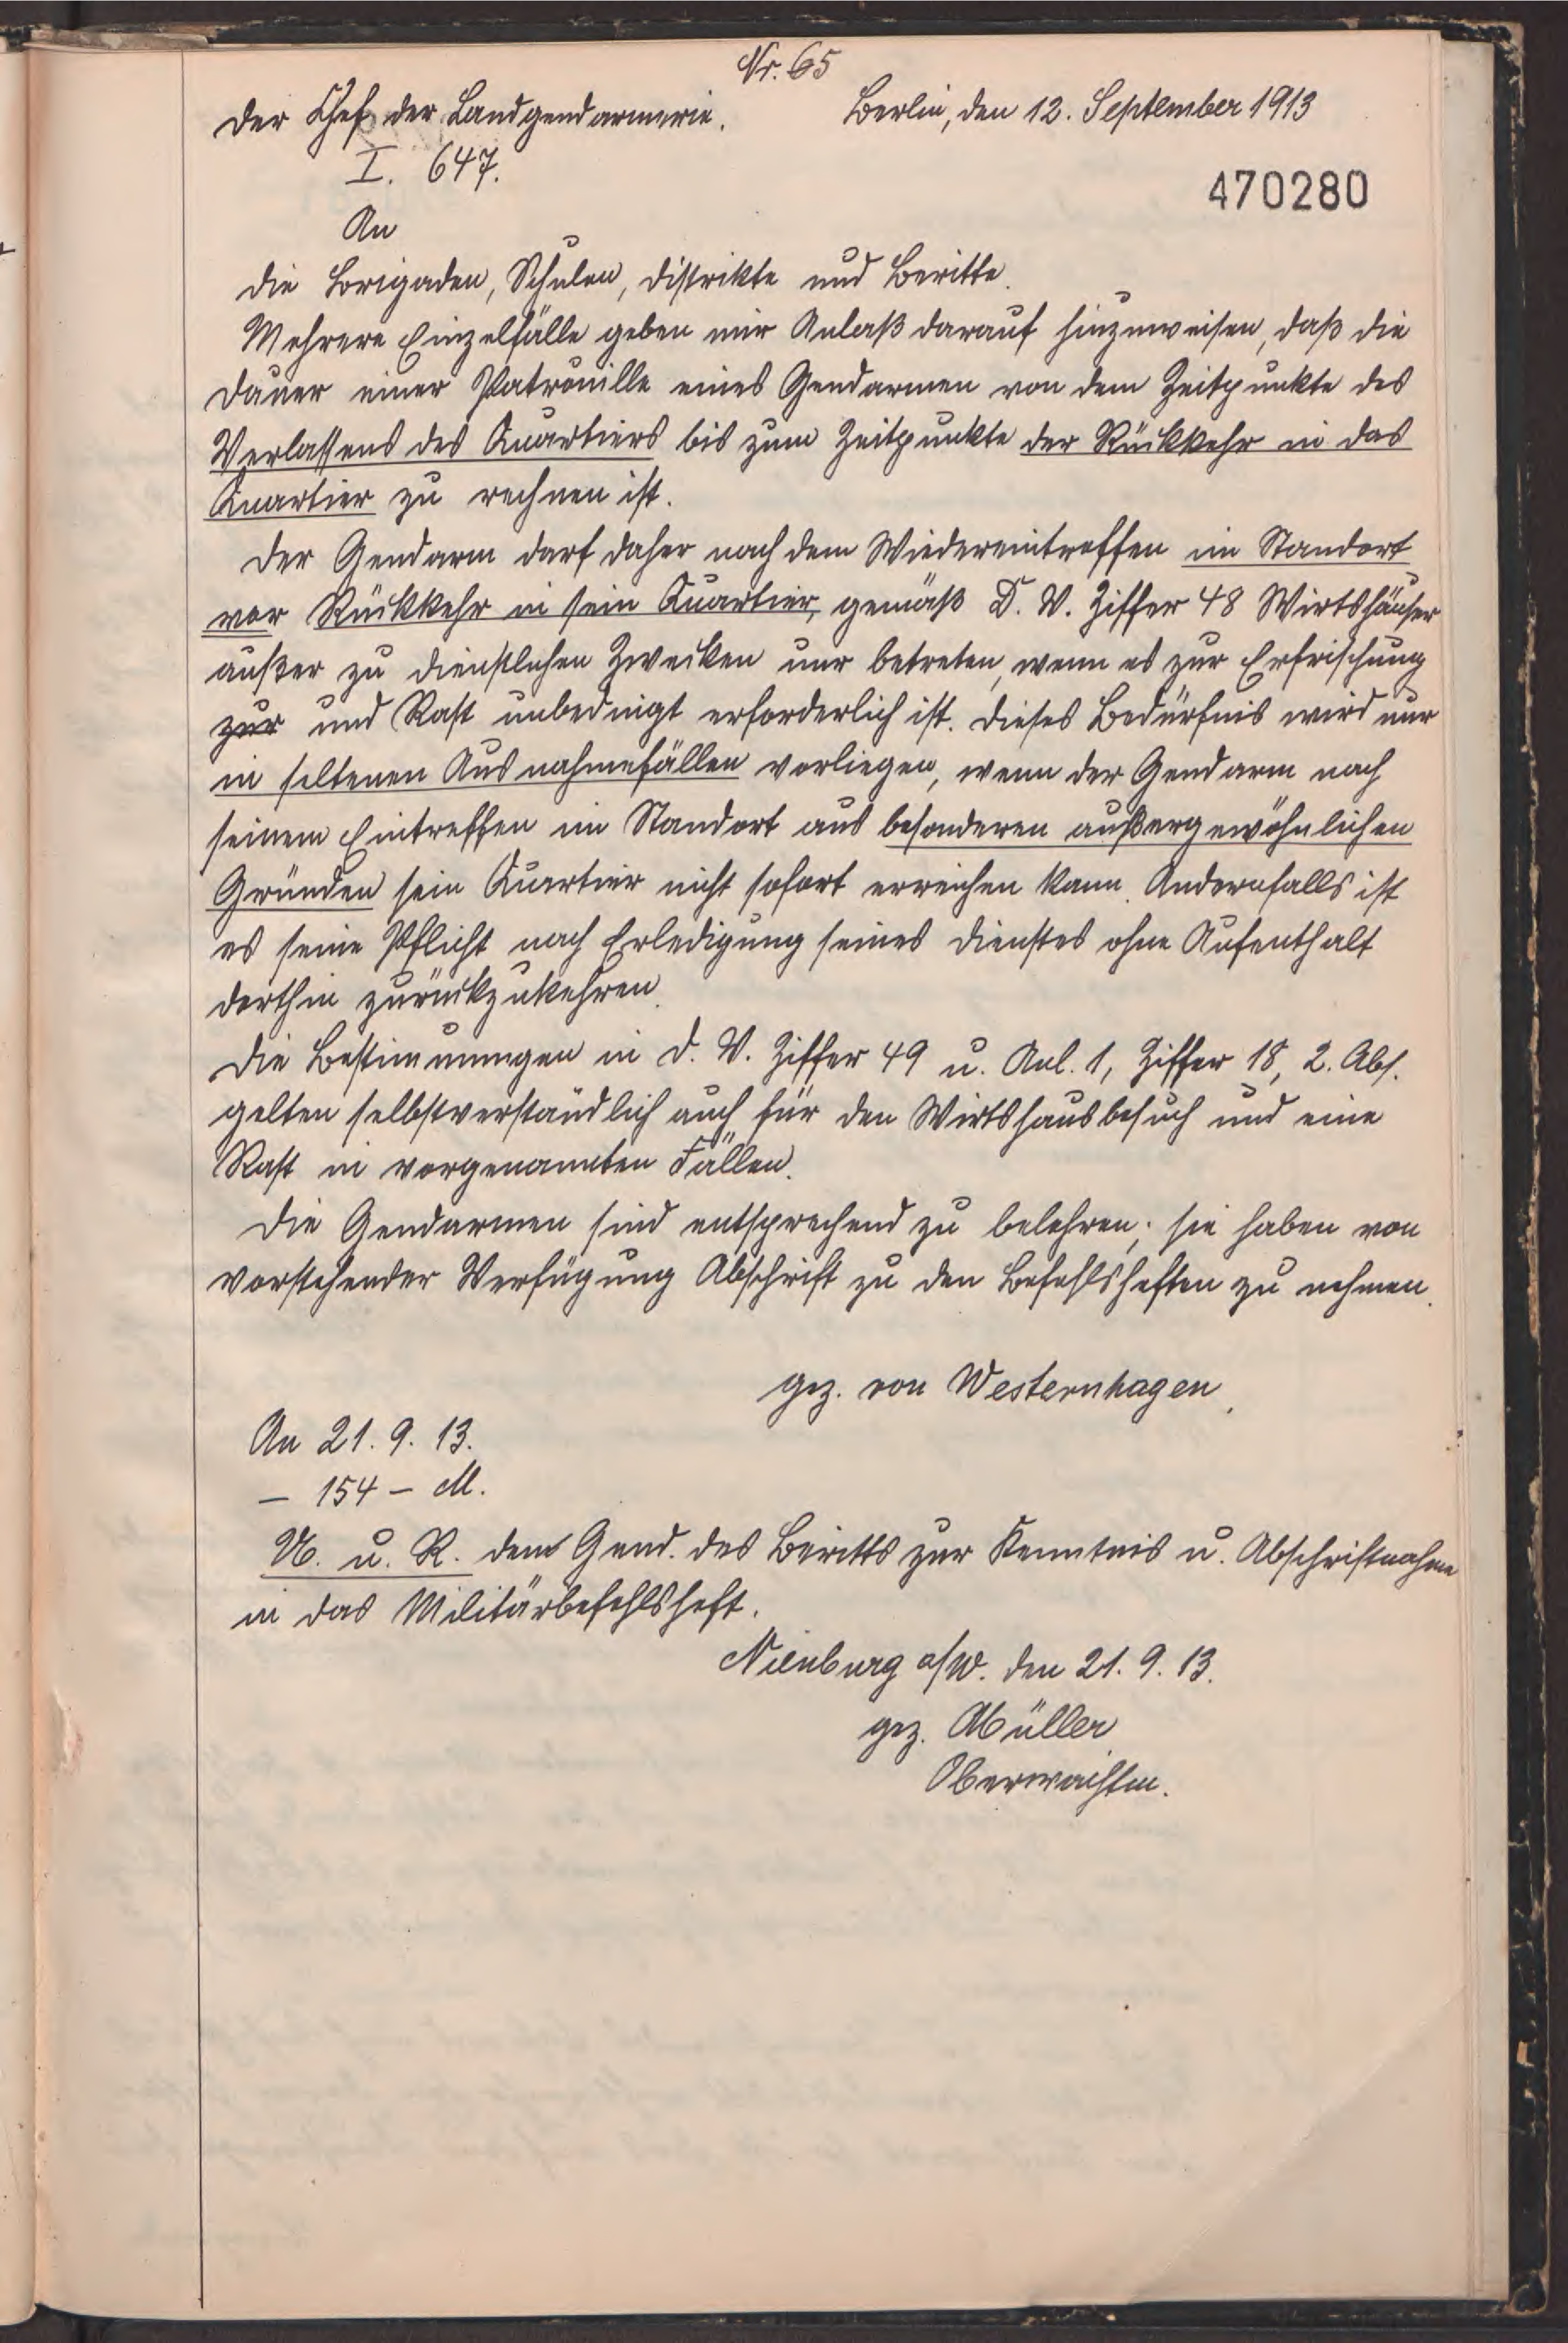 Nr. 65
Der Chef der Landgendarmerie. Berlin, den 12. September 1913
I. 647.
470280
An
die Brigaden, Schulen, Distrikte und Beritte.
Mehrere Einzelfälle geben mir Anlaß darauf hinzuweisen, daß die
Dauer einer Patrouille eines Gendarmen von dem Zeitpunkte des
Verlassens des Quartiers bis zum Zeitpunkte der Rückkehr in das
Quartier zu rechnen ist.
Der Gendarm darf daher nach dem Wiedereintreffen im Standort
vor Rückkehr in sein Quartier, gemäß D. V. Ziffer 48 Wirtshäuser
außer zu dienstlichen Zwecken nur betreten, wenn es zur Erfrischung
zur und Rast unbedingt erforderlich ist. Dieses Bedürfnis wird nur
in seltenen Ausnahmefällen vorliegen, wenn der Gendarm nach
seinem Eintreffen im Standort aus besonderen außergewöhnlichen
Gründen sein Quartier nicht sofort erreichen kann. Andernfalls ist
es seine Pflicht nach Erledigung seines Dienstes ohne Aufenthalt
dorthin zurückzukehren.
Die Bestimmungen in D. V. Ziffer 49 u. Anl. 1, Ziffer 18, 2. Abs.
gelten selbstverständlich auch für den Wirtshausbesuch und eine
Rast in vorgenannten Fällen.
Die Gendarmen sind entsprechend zu belehren; sie haben von
vorstehender Verfügung Abschrift zu den Befehlsheften zu nehmen.
gez. von Westernhagen.
An 21. 9. 13.
– 154 – M.
U. u. R. dem Gend. des Beritts zur Kenntnis u. Abschriftnahme
in das Militärbefehlsheft.
Nienburg a/W. den 21. 9. 13.
gez. Müller
Oberwachtm.